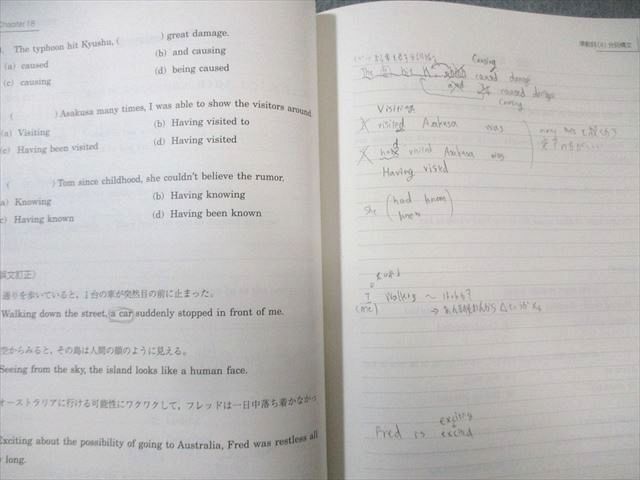 Chapter 18
The typhoon hit Kyushu, ( ) great damage.
(a) caused (b) and causing
(c) causing (d) being caused
( ) Asakusa many times, I was able to show the visitors around
(a) Visiting (b) Having visited to
(c) Having been visited (d) Having visited
( ) Tom since childhood, she couldn't believe the rumor.
(a) Knowing (b) Having knowing
(c) Having known (d) Having been known
誤文訂正）
通りを歩いていると，1台の車が突然目の前に止まった。
Walking down the street, a car suddenly stopped in front of me.
空からみると，その島は人間の顔のように見える。
Seeing from the sky, the island looks like a human face.
オーストラリアに行ける可能性にワクワクして，フレッドは一日中落ち着かなかっ
Exciting about the possibility of going to Australia, Fred was restless all
long.
準動詞(4) 分詞構文
Causing
The hit which caused damage
and caused damage
Causing
Visiting
X visited Asakusa was
X had visited Asakusa was
Having visted
She (had known
knew)
I walking ~
(me)
exciting
Fred is excited